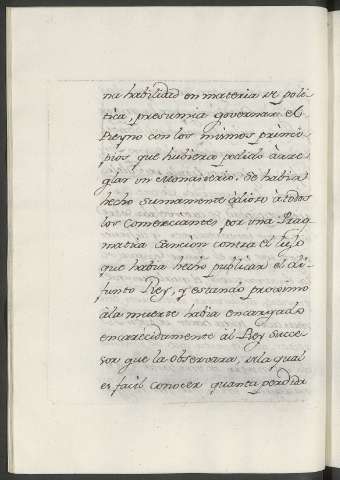 na habilidad en materia de poli-
tica, presumia governar el
Reyno con los mismos princi-
pios que hubiera podido arre-
glar un Monasterio. Se habia
hecho sumamente odioso à todos
los Comerciantes por una Prag-
matica Sancion contra el lujo
que habia hecho publicar el di-
funto Rey, y estando proximo
à la muerte habia encargado
encarecidamente al Rey succe-
sor que la observara, de la qual
es facil conocer quanta perdida